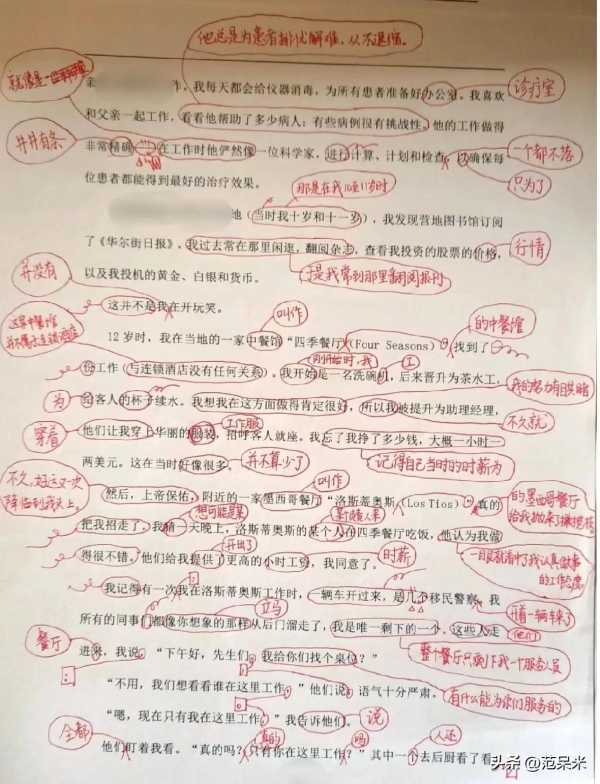 他总是为患者排忧解难、从不退缩。
就像是一
亲 作,我每天都会给仪器消毒,为所有患者准备好办公室。我喜欢
诊疗室
和父亲一起工作,看看他帮助了多少病人;有些病例很有挑战性。他的工作做得
井井有条
非常精确 在工作时他俨然像一位科学家,进行计算、计划和检查,以确保每
一个都不落
只为了
位患者都能得到最好的治疗效果。
那是在我10至11岁时
地(当时我十岁和十一岁),我发现营地图书馆订阅
了《华尔街日报》。我过去常在那里闲逛,翻阅杂志,查看我投资的股票的价格,
行情
以及我投机的黄金、白银和货币。
于是我常到那里翻阅报刊
并没有
这并不是我在开玩笑。
叫作
这家中餐馆
的中餐馆
12岁时,我在当地的一家中餐馆“四季餐厅”(Four Seasons)找到了
刚开始时,我
工
份工作(与连锁酒店没有任何关系)。我开始是一名洗碗机,后来晋升为茶水工,
为
给客人的杯子续水。我想我在这方面做得肯定很好,所以我被提升为助理经理,
不久就
穿着
工作服
他们让我穿上华丽的服装,招呼客人就座。我忘了我挣了多少钱,大概一小时一
两美元。这在当时好像很多。
并不算少了
记得自己当时的时薪为
不久,好运又一次降临到我头上。
叫作
然后,上帝保佑,附近的一家墨西哥餐厅“洛斯蒂奥斯”(Los Tios),真的
的墨西哥餐厅
想可能是某
把我招走了。我猜一天晚上,洛斯蒂奥斯的某个人在四季餐厅吃饭,他认为我做
开出了
时薪
得很不错。他们给我提供了更高的小时工资,我同意了。
一眼就看中了我认真做事的工作态度
我记得有一次我在洛斯蒂奥斯工作时,一辆车开过来,是几个移民警察。我
立马
开着一辆车来了
所有的同事们都像你想象的那样从后门溜走了,我是唯一剩下的一个。这些人走
他们
餐厅
进来,我说:“下午好,先生们。我给你们找个桌位?”
整个餐厅只剩下我一个服务人员
“不用,我们想看看谁在这里工作。”他们说,语气十分严肃。
有什么能为你们服务的
“嗯,现在只有我在这里工作。”我告诉他们。
说
全都
真的
吗
人还
他们盯着我看。“真的吗?只有你在这里工作?”其中一个去后厨看了看,
头条 @范呆米